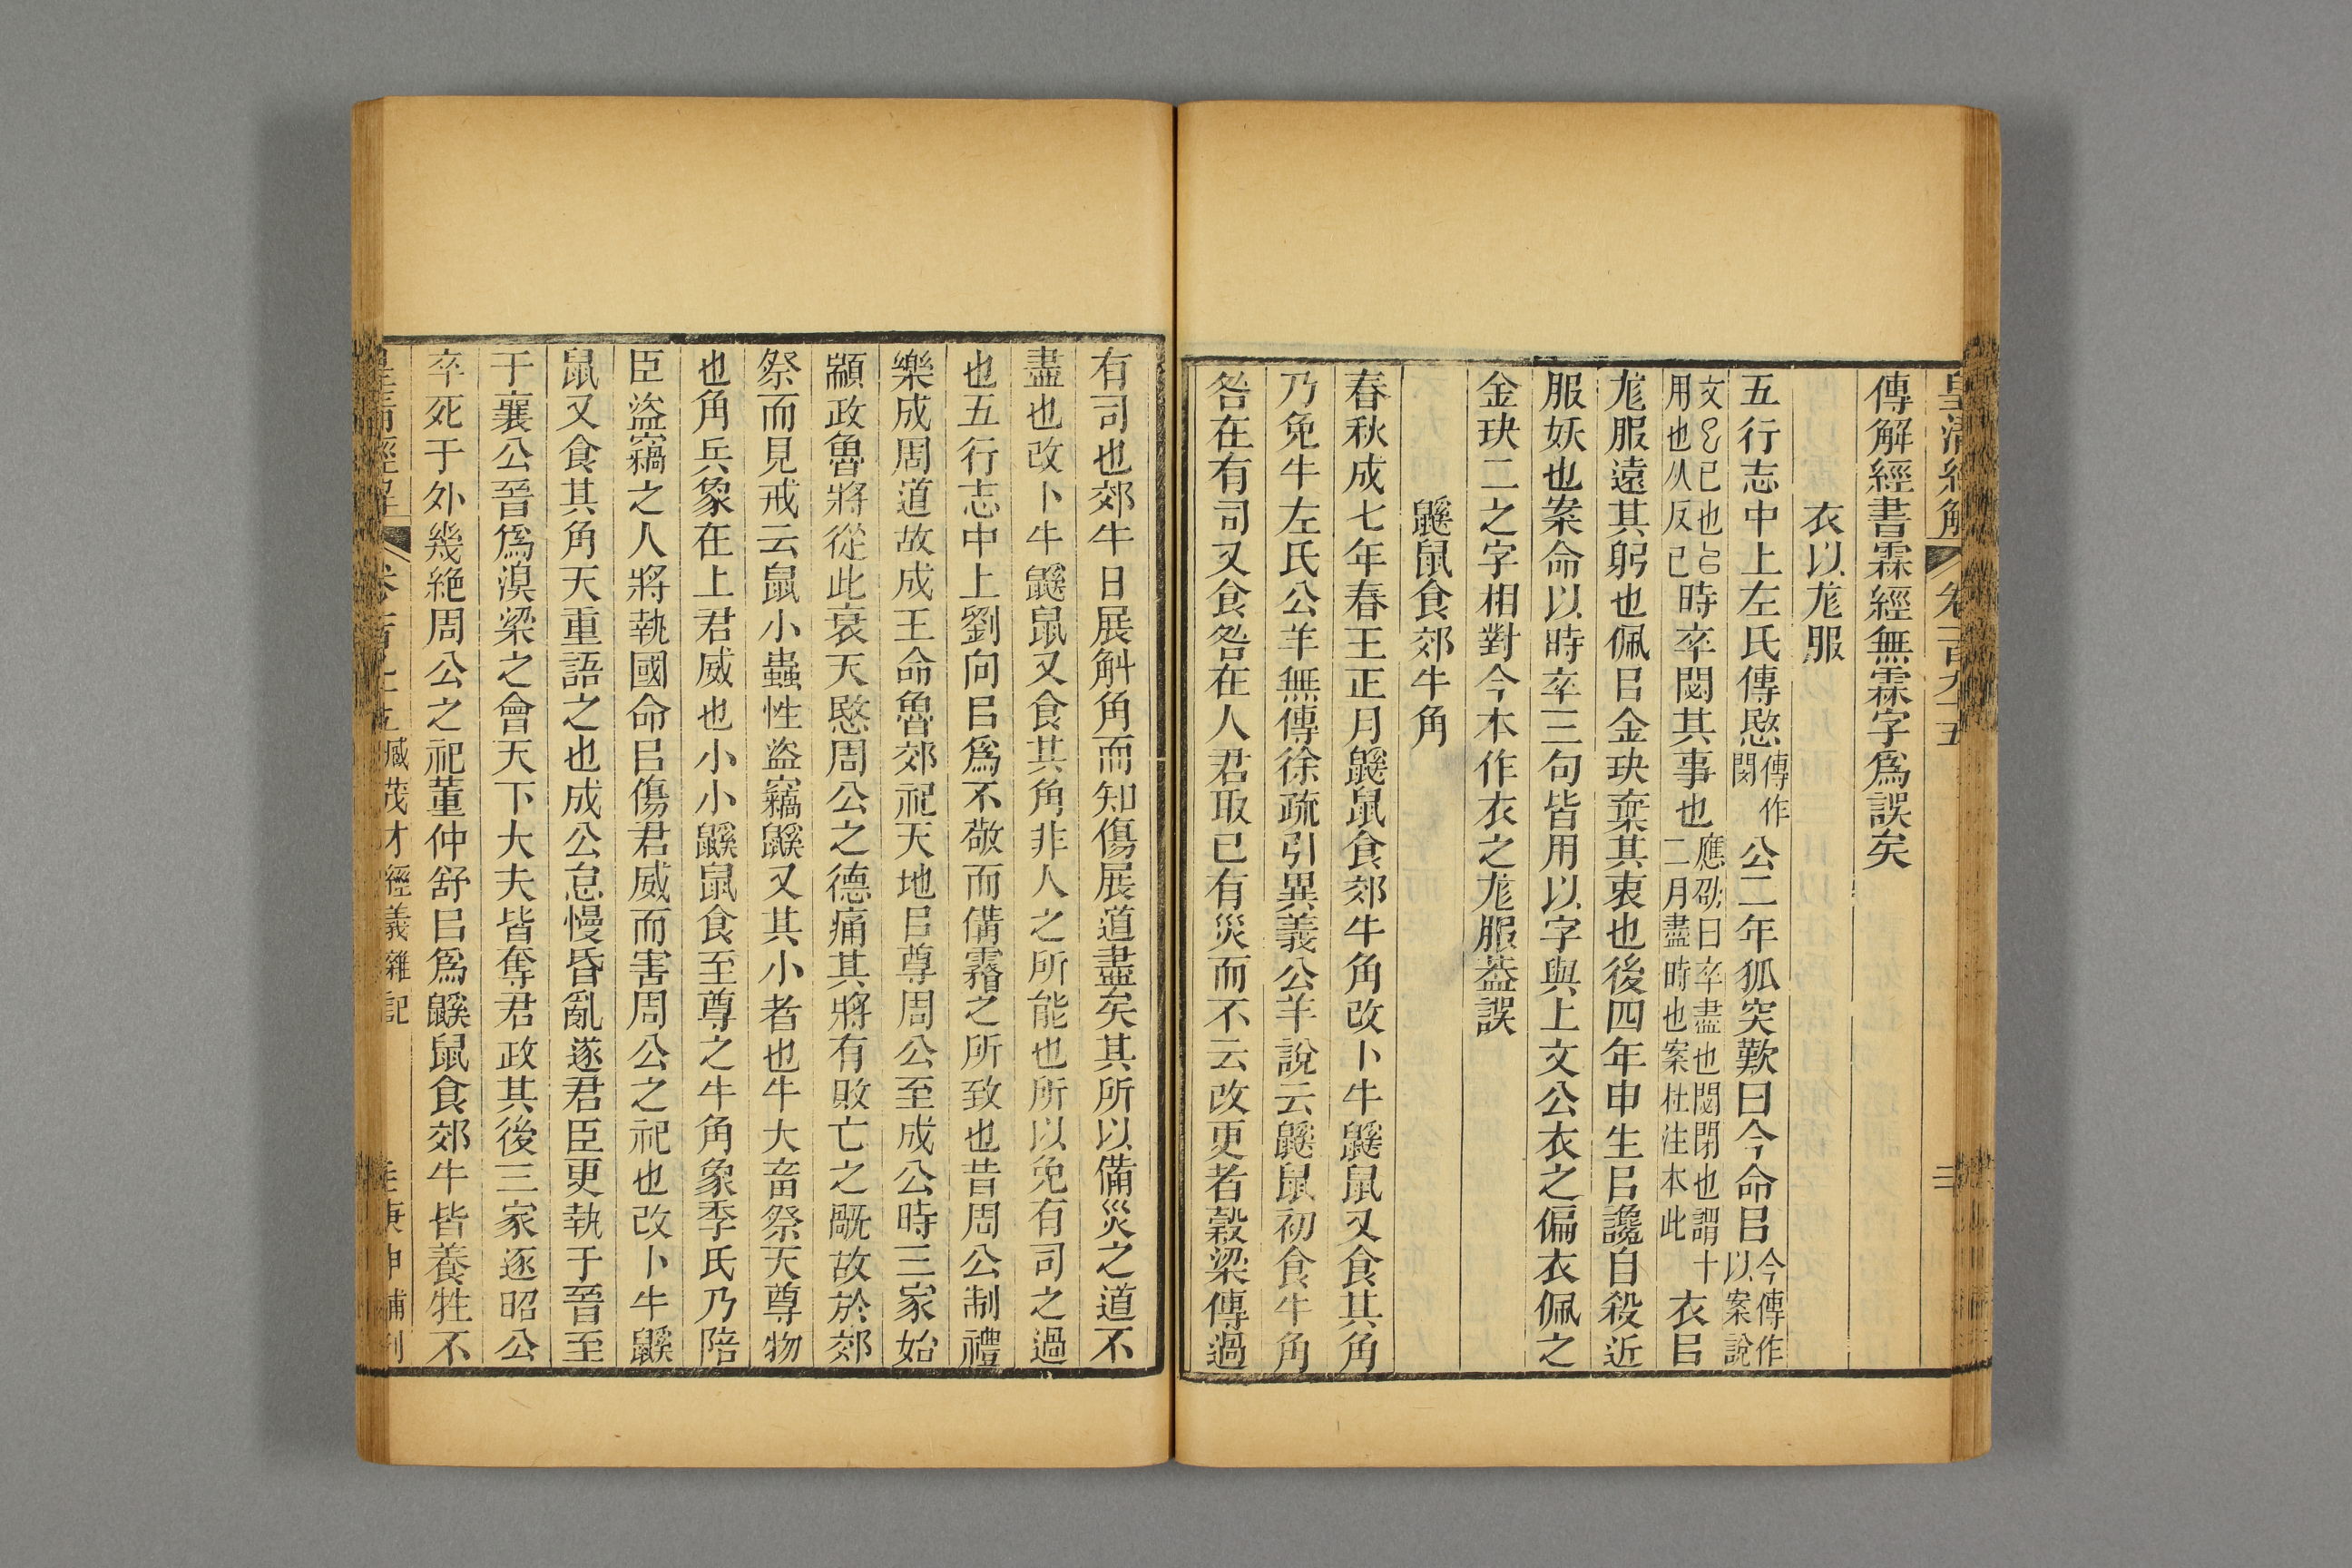 皇清經解 卷一百九十五 二
傳解經書霖經無霖字爲誤矣
衣以尨服
五行志中上左氏傳愍傳作閔公二年狐突歎曰今命㠯今傳作以案說
文㠯已也㠯用也从反已時卒閟其事也應劭曰卒盡也閟閉也謂十二月盡時也案杜注本此衣㠯
尨服遠其躬也佩㠯金玦棄其衷也後四年申生㠯讒自殺近
服妖也案命以時卒三句皆用以字與上文公衣之偏衣佩之
金玦二之字相對今本作衣之尨服葢誤
鼷鼠食郊牛角
春秋成七年春王正月鼷鼠食郊牛角改卜牛鼷鼠又食其角
乃免牛左氏公羊無傳徐疏引異義公羊說云鼷鼠初食牛角
咎在有司又食咎在人君取已有災而不云改更者穀梁傳過
有司也郊牛日展斛角而知傷展道盡矣其所以備災之道不
盡也改卜牛鼷鼠又食其角非人之所能也所以免有司之過
也五行志中上劉向㠯爲不敬而傋霿之所致也昔周公制禮
樂成周道故成王命魯郊祀天地㠯尊周公至成公時三家始
顓政魯將從此衰天愍周公之德痛其將有敗亡之旤故於郊
祭而見戒云鼠小蟲性盜竊鼷又其小者也牛大畜祭天尊物
也角兵象在上君威也小小鼷鼠食至尊之牛角象季氏乃陪
臣盜竊之人將執國命㠯傷君威而害周公之祀也改卜牛鼷
鼠又食其角天重語之也成公怠慢昏亂遂君臣更執于晉至
于襄公晉爲湨梁之會天下大夫皆奪君政其後三家逐昭公
卒死于外幾絕周公之祀董仲舒㠯爲鼷鼠食郊牛皆養牲不
皇清經解 臧茂才經義雜記 庚申補刊